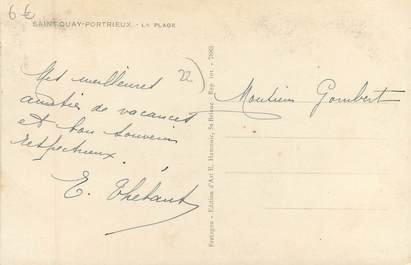 6€
SAINT-QUAY-PORTRIEUX. - LA PLAGE
22)
Mes meilleures
amitiés de vacances
et bon souvenir
respectueux.
E. Thébaut
Bretagne - Edition d'Art R. Hamonic, St-Brieuc. Rep. int. - 7085
Gombert